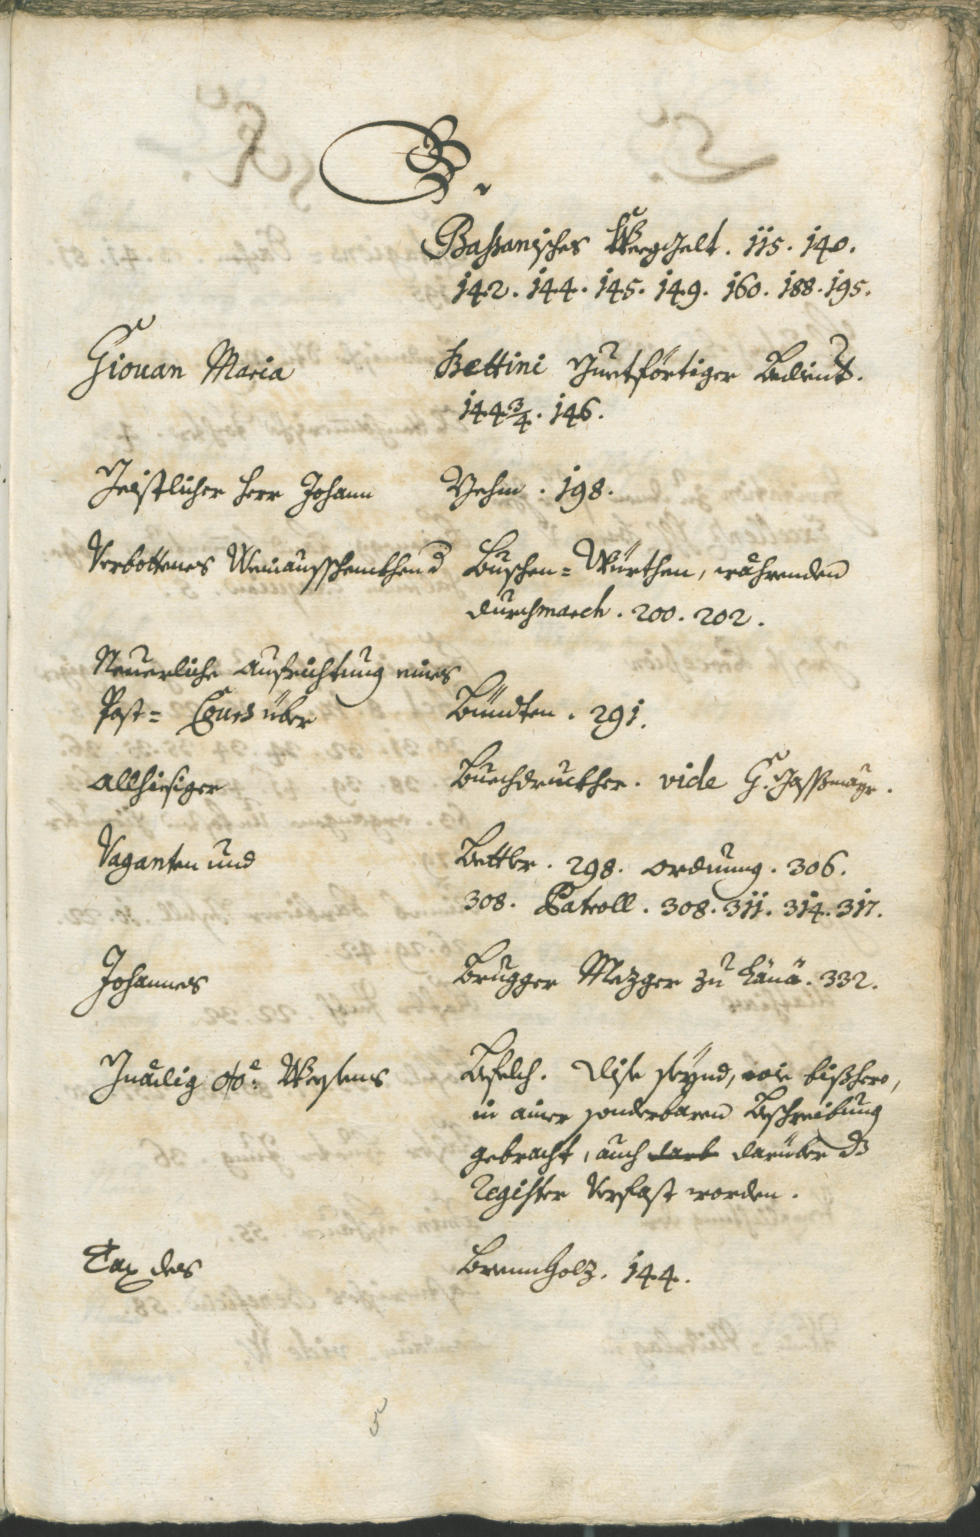 B.
Bassanisches Weeggelt. 115. 140.
142. 144. 145. 149. 160. 188. 195.
Giouan Maria Bettini Gurtförtiger
144 3/4. 146.
Geistlicher Herr Johann Behm. 198.
Verbottenes Weinausschenkhen d Buschen= Würthen, währenden
durchmarch. 200. 202.
Neuerliche Aufrichtung eines
Post= Cours über Bündten. 291.
Allhiesiger Buechdruckher. vide G.
Vaganten und Bettler. 298. Ordnung. 306.
308. Patroll. 308. 311. 314. 317.
Johannes Brugger Mezger zu Länä. 332.
Gnädig Weesens Befelch. Dise seynd, wie bißhero,
in ainer sonderbaren Beschreibung
gebracht, auch darüber ds
Register Verfast worden.
Tax des Brennholz. 144.
5